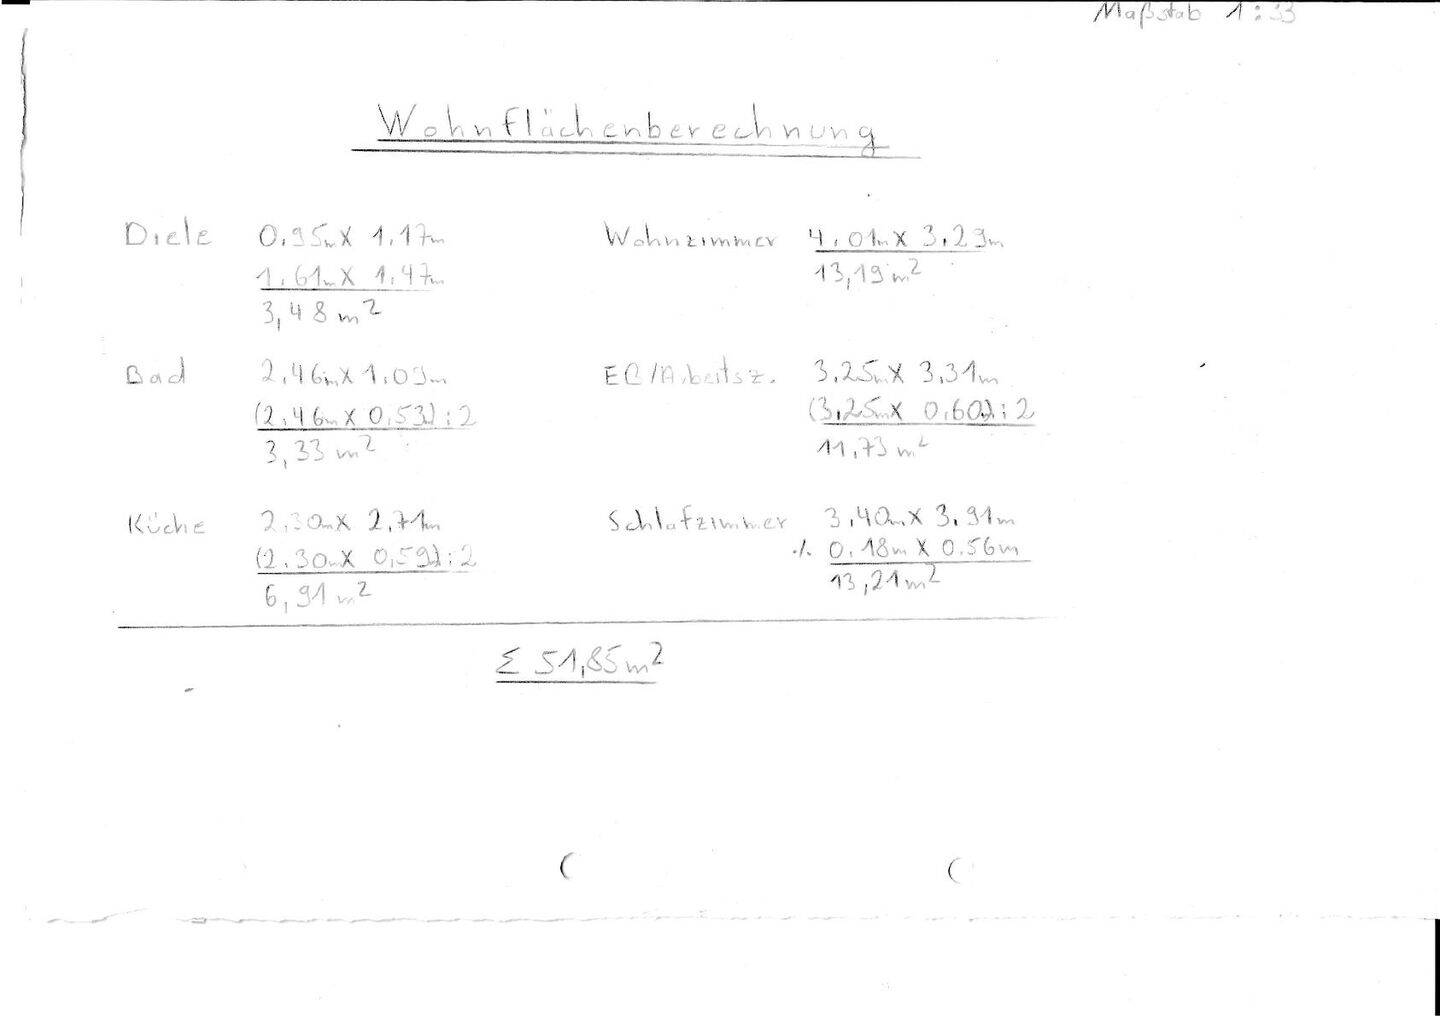 Maßstab 1:33
Wohnflächenberechnung
Diele 0,95m X 1,17m
1,61m X 1,47m
3,48 m²
Wohnzimmer 4,01m X 3,29m
13,19 m²
Bad 2,46m X 1,09m
(2,46m X 0,53):2
3,33 m²
EC/Arbeitsz. 3,25m X 3,31m
(3,25m X 0,60):2
11,73 m²
Küche 2,30m X 2,71m
(2,30m X 0,59):2
6,91 m²
Schlafzimmer 3,40m X 3,91m
./. 0,18m X 0.56m
13,21 m²
Σ 51,85 m²